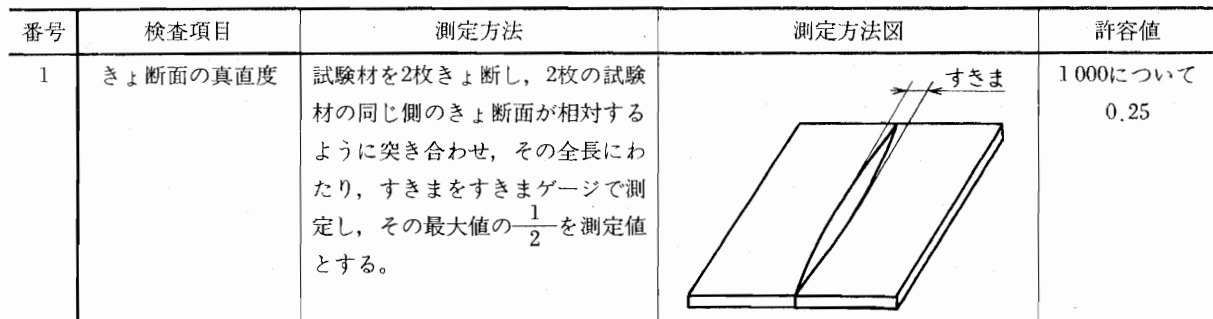 番号 検査項目 測定方法 測定方法図 許容値
1 きょ断面の真直度
試験材を2枚きょ断し，2枚の試験
材の同じ側のきょ断面が相対する
ように突き合わせ，その全長にわ
たり，すきまをすきまゲージで測
定し，その最大値の1/2を測定値
とする。
すきま
1000について
0.25